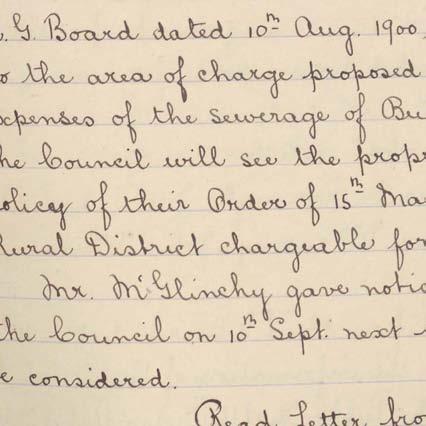 . G. Board dated 10th Aug. 1900
o the area of charge proposed
xpenses of the sewerage of Bu
he Council will see the propr
olicy of their Order of 15th Ma
Rural District chargeable for
Mr. McGlinchy gave notic
the Council on 10th Sept. next
e considered.
Read Letter fro